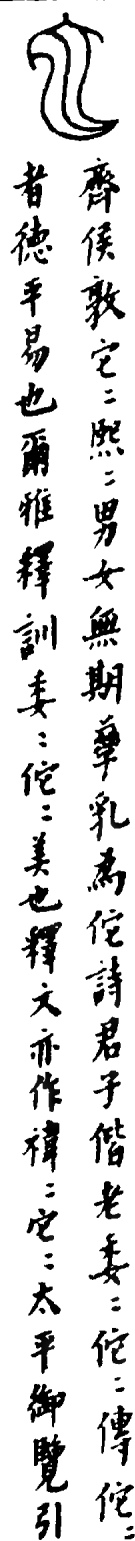 齊侯敦它〻熙〻男女無期孳乳為佗詩君子偕老委〻佗〻傳佗〻
者德平易也爾雅釋訓委〻佗〻美也釋文亦作禕〻它〻太平御覽引